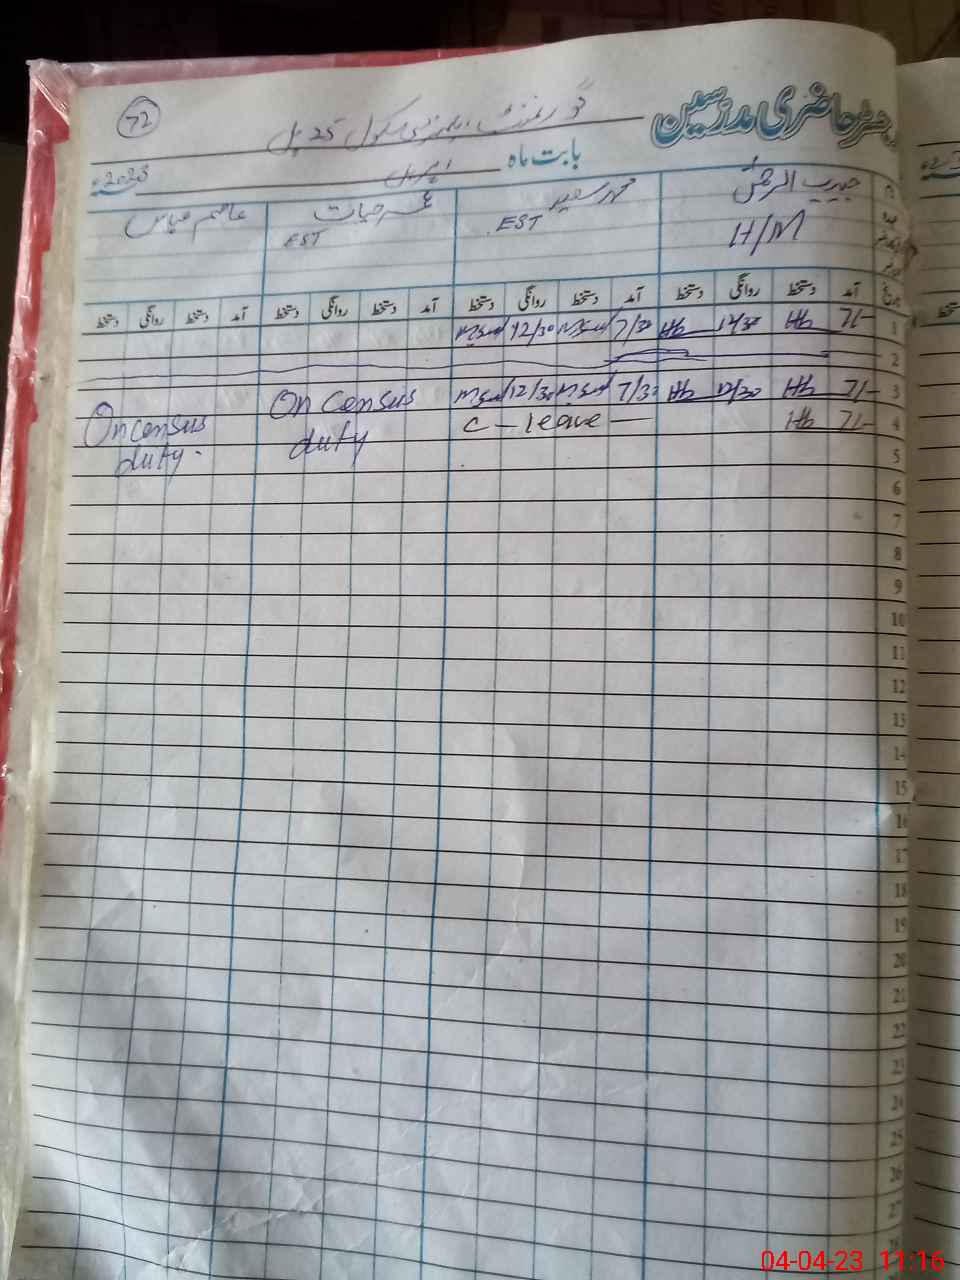 72
رجسٹر حاضری مدرسین
گورنمنٹ ایلیمنٹری سکول 25 پل
بابت ماہ اپریل 2023ء
حبیب الرحمٰن محمد سعید عمر حیات عاصم عباس
H/M EST EST
تاریخ آمد دستخط روانگی دستخط آمد دستخط روانگی دستخط آمد دستخط روانگی دستخط آمد دستخط روانگی دستخط
1 7/- Hb 12/30 Hb 7/30 MSaed 12/30 MSaed
2
3 7/- Hb 12/30 Hb 7/30 MSaed 12/30 MSaed
On census duty
On census duty.
4 7/- Hb C - leave -
5
6
7
8
9
10
11
12
13
14
15
16
17
18
19
20
21
22
23
24
25
26
27
04-04-23 11:16